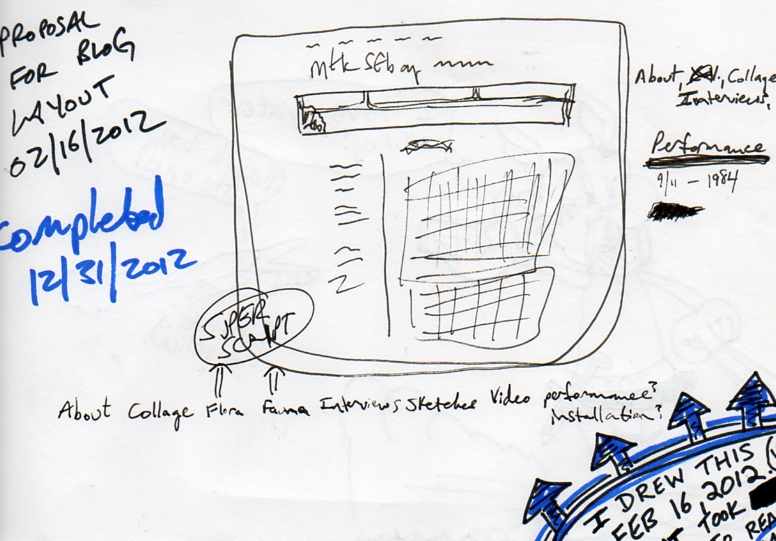 PROPOSAL
FOR BLOG
LAYOUT
02/16/2012
Completed
12/31/2012
About, Collage
Interviews,
Performance
9/11 - 1984
SUPER
SCRIPT
About Collage Flora Fauna Interviews Sketches Video performance?
installation?
I DREW THIS
FEB 16 2012.
TOOK